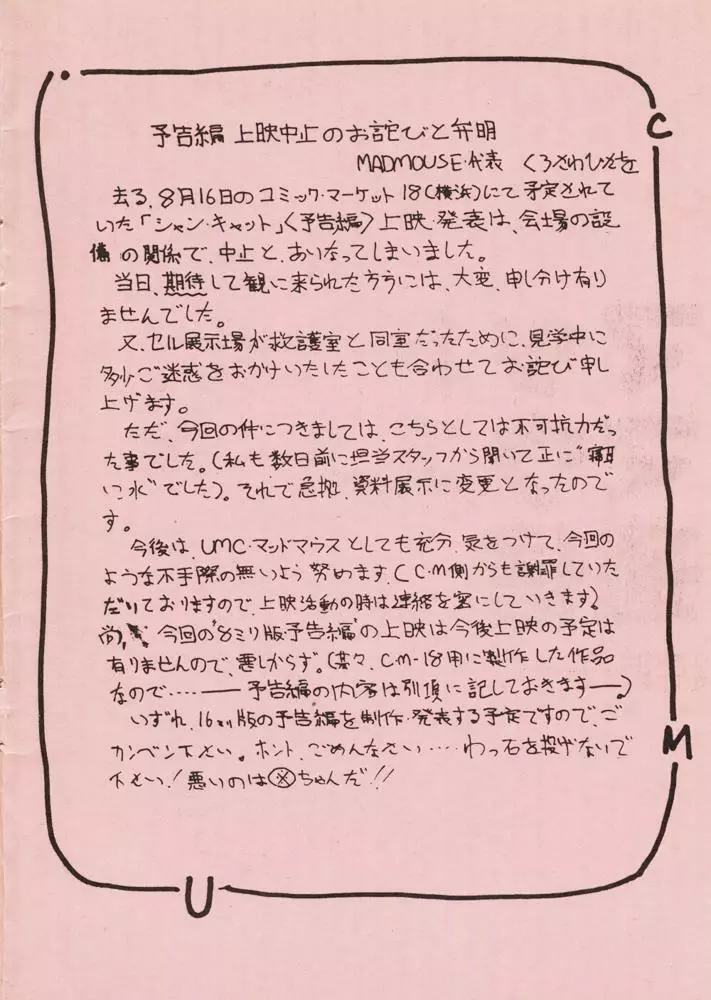 予告編 上映中止のお詫びと弁明
MADMOUSE・代表 くろさわひさを
去る、8月16日のコミック・マーケット18(横浜)にて予定されて
いた「シャン・キャット」〈予告編〉上映・発表は、会場の設
備の関係で、中止と、あいなってしまいました。
当日、期待して観に来られた方々には、大変、申し分け有り
ませんでした。
又、セル展示場が救護室と同室だったために、見学中に
多少ご迷惑をおかけいたしたことも合わせてお詫び申し
上げます。
ただ、今回の件につきましては、こちらとしては不可抗力だっ
た事でした。(私も数日前に担当スタッフから聞いて正に"寝耳
に水"でした)。それで急拠、資料展示に変更となったので
す。
今後は、UMC・マッドマウスとしても充分、気をつけて、今回の
ような不手際の無いよう努めます。(C・M側からも謝罪していた
だいておりますので、上映活動の時は連絡を密にしていきます)
尚、今回の"8ミリ版・予告編"の上映は今後上映の予定は
有りませんので、悪しからず。(菜々、CM-18用に製作した作品
なので……―― 予告編の内容は別項に記しておきます――。)
いずれ、16ミリ版の予告編を制作・発表する予定ですので、ご
カンベン下さい。ホント、ごめんなさい……わっ石を投げないで
下さい!悪いのは○×ちゃんだ!!
C
M
U